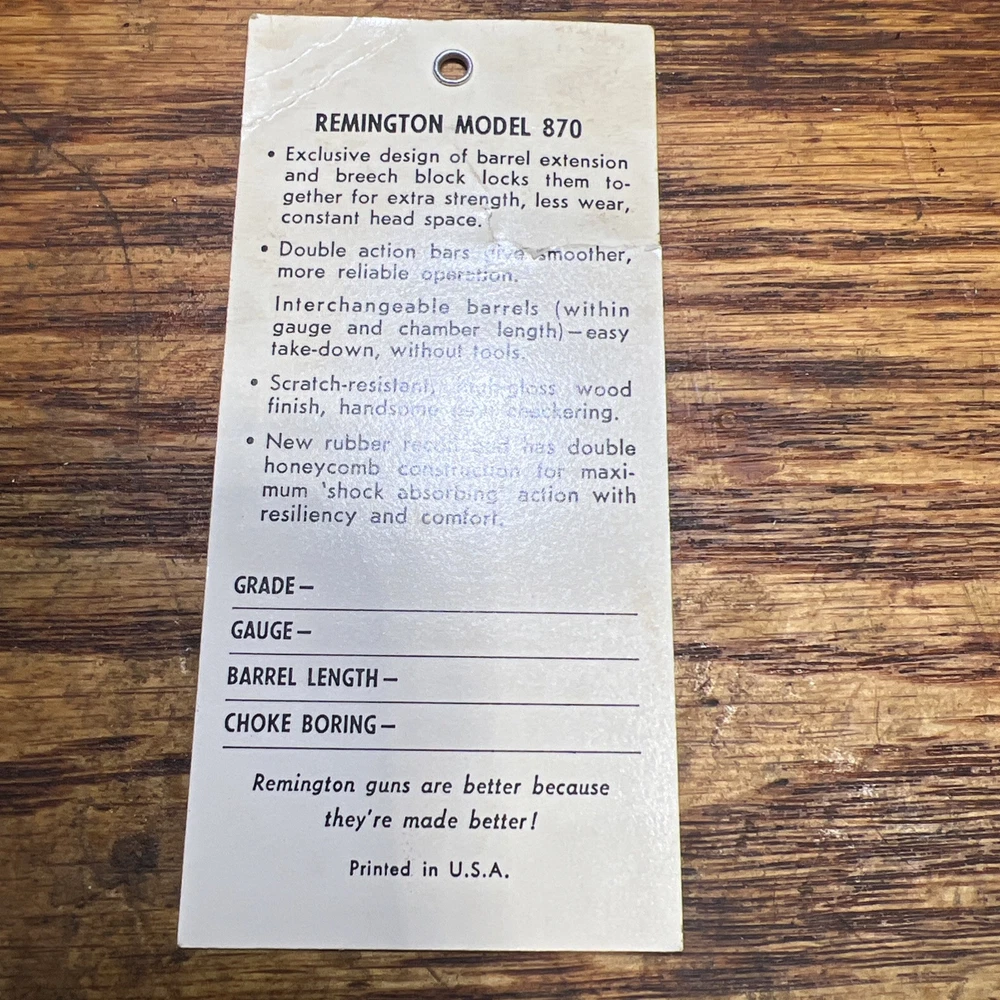 REMINGTON MODEL 870
• Exclusive design of barrel extension
and breech block locks them to-
gether for extra strength, less wear,
constant head space.
• Double action bars give smoother,
more reliable operation.
Interchangeable barrels (within
gauge and chamber length)—easy
take-down, without tools.
• Scratch-resistant, high-gloss wood
finish, handsome checkering.
• New rubber recoil pad has double
honeycomb construction for maxi-
mum 'shock absorbing' action with
resiliency and comfort.
GRADE—
GAUGE—
BARREL LENGTH—
CHOKE BORING—
Remington guns are better because
they're made better!
Printed in U.S.A.